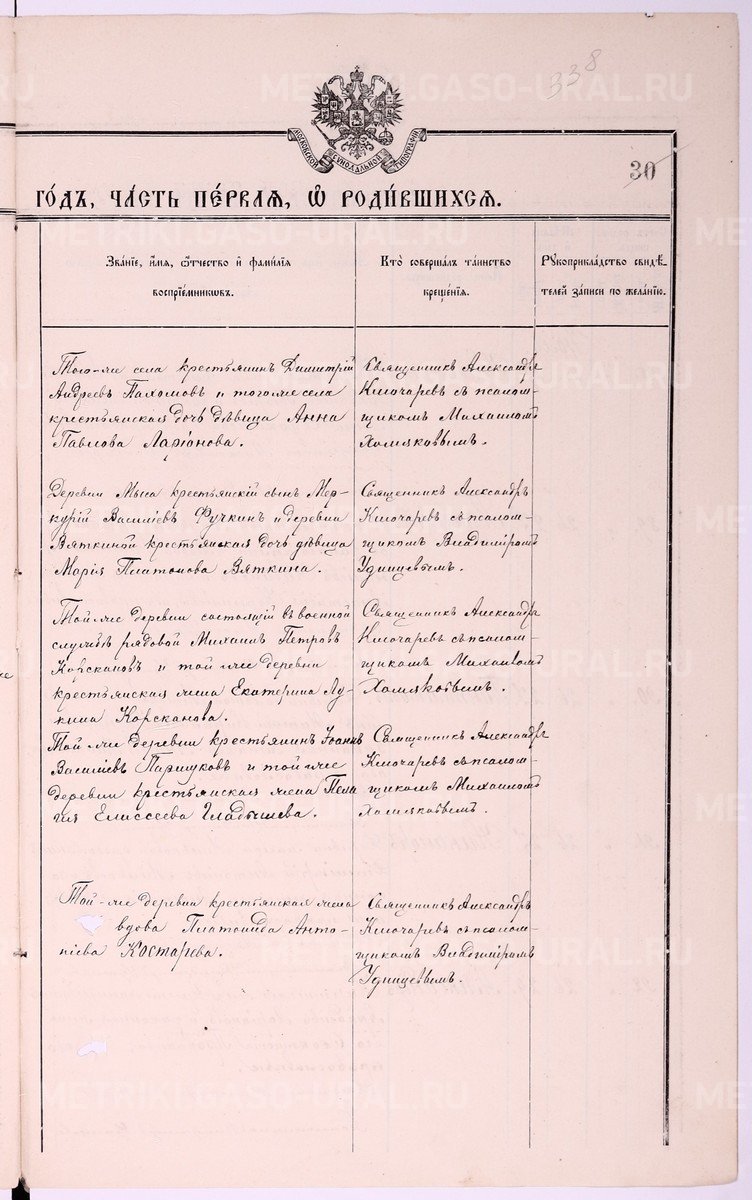 338
METRIKI.GASO-URAL.RU
МОСКОВСКОЙ СѴНОДАЛЬНОЙ ТИПОГРАФІИ
30
ГО́ДЪ, ЧА́СТЬ ПЕ́РВАЯ, Ѡ РОДИ́ВШИХСЯ.
Зва́нїе, и́мя, ѻ҆́тчество и҆ фами́лїя
воспрїе́мникѡвъ.
Кто̀ соверша́лъ та́инство
креще́нїя.
Рꙋкоприкла́дство свидѣ́-
телей за́писи по жела́нїю.
Того-же села крестьянинъ Димитрій
Андреевъ Пахомовъ и того же села
крестьянская дочь дѣвица Анна
Павлова Ларіонова.
Священникъ Александръ
Ключаревъ съ псалом-
щикомъ Михаиломъ
Хомяковымъ.
Деревни Мыса крестьянскій сынъ Мер-
курій Василіевъ Фучкинъ и деревни
Вяткиной крестьянская дочь дѣвица
Марія Платонова Вяткина.
Священникъ Александръ
Ключаревъ съ псалом-
щикомъ Владиміромъ
Удинцевымъ.
Той-же деревни состоящій въ военной
службѣ рядовой Михаилъ Петровъ
Корскановъ и той же деревни
крестьянская жена Екатерина Лу-
кина Корсканова.
Священникъ Александръ
Ключаревъ съ псалом-
щикомъ Михаиломъ
Хомяковымъ.
Той же деревни крестьянинъ Іоаннъ
Василіевъ Паршуковъ и той же
деревни крестьянская жена Пела
гія Елиссеева Гладышева.
Священникъ Александръ
Ключаревъ съ псалом-
щикомъ Михаиломъ
Хомяковымъ.
Той-же деревни крестьянская жена
вдова Платонида Анто-
ніева Костарева.
Священникъ Александръ
Ключаревъ съ псалом-
щикомъ Владиміромъ
Удинцевымъ.
METRIKI.GASO-URAL.RU